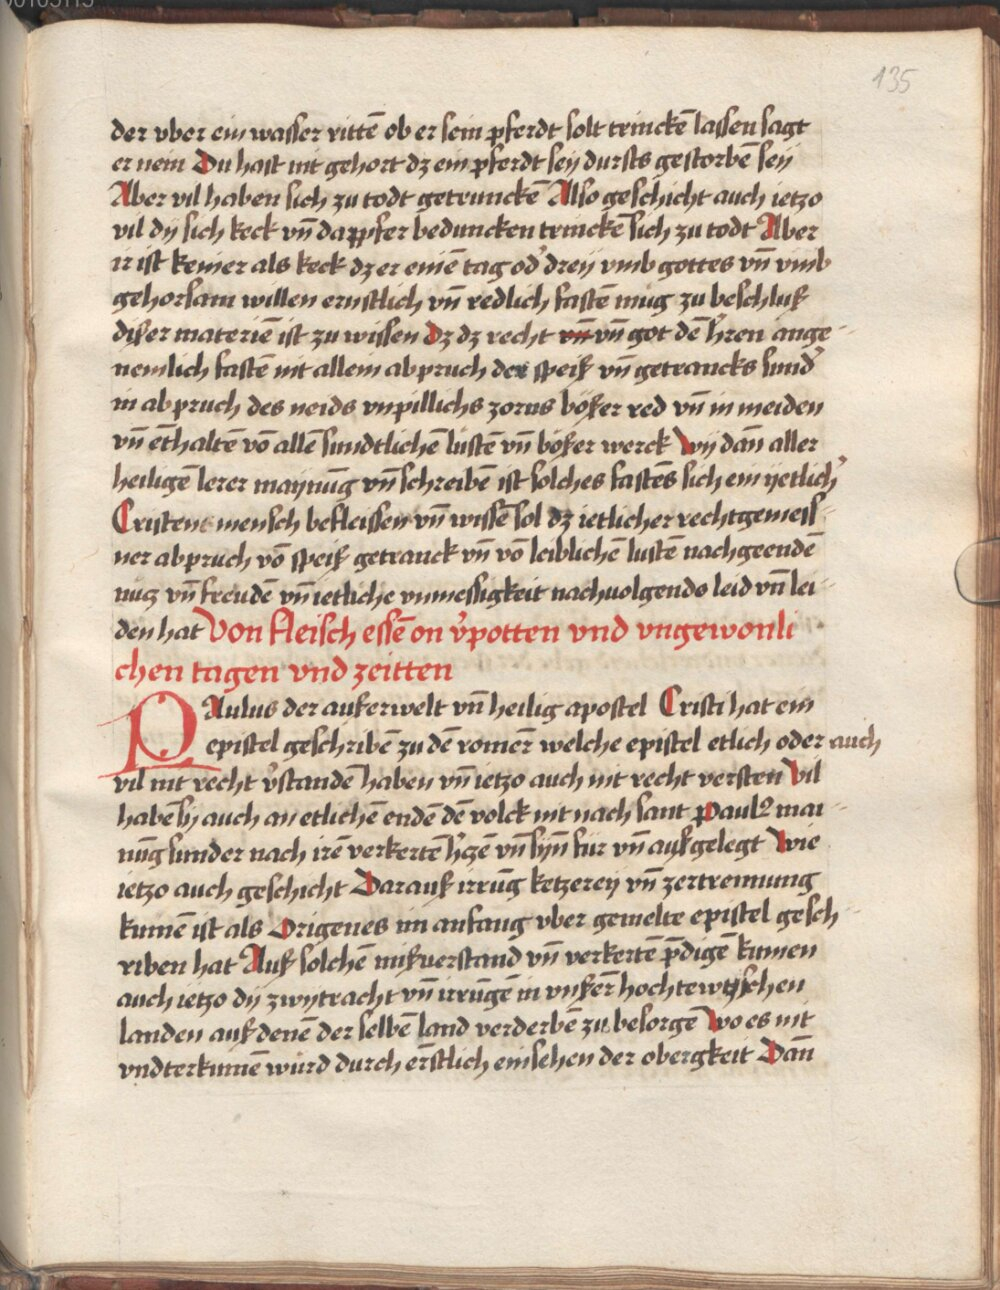 135
der vber ein wasser rittē ob er sein pferdt solt trinckē lassen sagt
er nein Du hast nit gehort dz ein pferdt seÿ dursts gestorbē seÿ
Aber vil haben sich zu todt getrunckē Also geschicht auch ietzo
vil dÿ sich keck vñ dappfer beduncken trinckē sich zu todt Aber
ir ist keiner als keck dz er einē tag od' dreÿ vmb gottes vñ vmb
gehorsam willen ernstlich vñ redlich fastē mug zu beschluß
dißer materiē ist zu wissen dz dz recht vñ vñ got dē h'ren ange-
nemlich fastē nit allein abpruch der speiß vñ getrancks sund'
in abpruch des neids vnpillichs zorns bößer red vñ in meiden
vñ ethaltē vō allē sundtlichē lustē vñ bößer werck Wÿ dañ aller
heiligē lerer maÿnūg vñ schreibē ist solches fastēs sich ein ÿetlich'
Cristen mensch befleissen vñ wissē sol dz ietlicher rechtgemess-
ner abpruch vō speiß getranck vñ vō leiblichē lustē nachgeendē
nuz vñ freudē vñ ietliche vnmessigkeit nachuolgendo leid vñ lei-
den hat Von fleisch essē on v'potten vnd vngewonli
chen tagen vnd zeitten
PAulus der außerwelt vñ heilig apostel Cristi hat ein
epistel geschribē zu dē romer welche epistel etlich oder auch
vil nit recht v'standē haben vñ ietzo auch nit recht versten Vil
habē sÿ auch an etlichē endē dē volck nit nach sant Pauls mai-
nūg sunder nach irē verkertē h'zē vñ sÿn für vñ außgelegt Wie
ietzo auch geschicht Darauß irrūg ketzereÿ vñ zertrennung
kumē ist als Origenes im anfang vber gemelte epistel gesch-
riben hat Auß solchē mißverstand vñ verkertē p̄digē kumen
auch ietzo dÿ zwÿtracht vñ irrūgē in vnßer hochtewtzschen
landen auß denē der selbē land verderbē zu besorgē Wo es nit
vndterkumē wurd durch erstlich einsehen der obergkeit Dañ